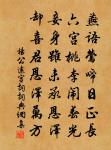 燕語鶯啼日正長
六宮桃李鬧春光
妾身雖未承恩澤
却喜君恩澤萬方
楊公遠宮詞詞典網